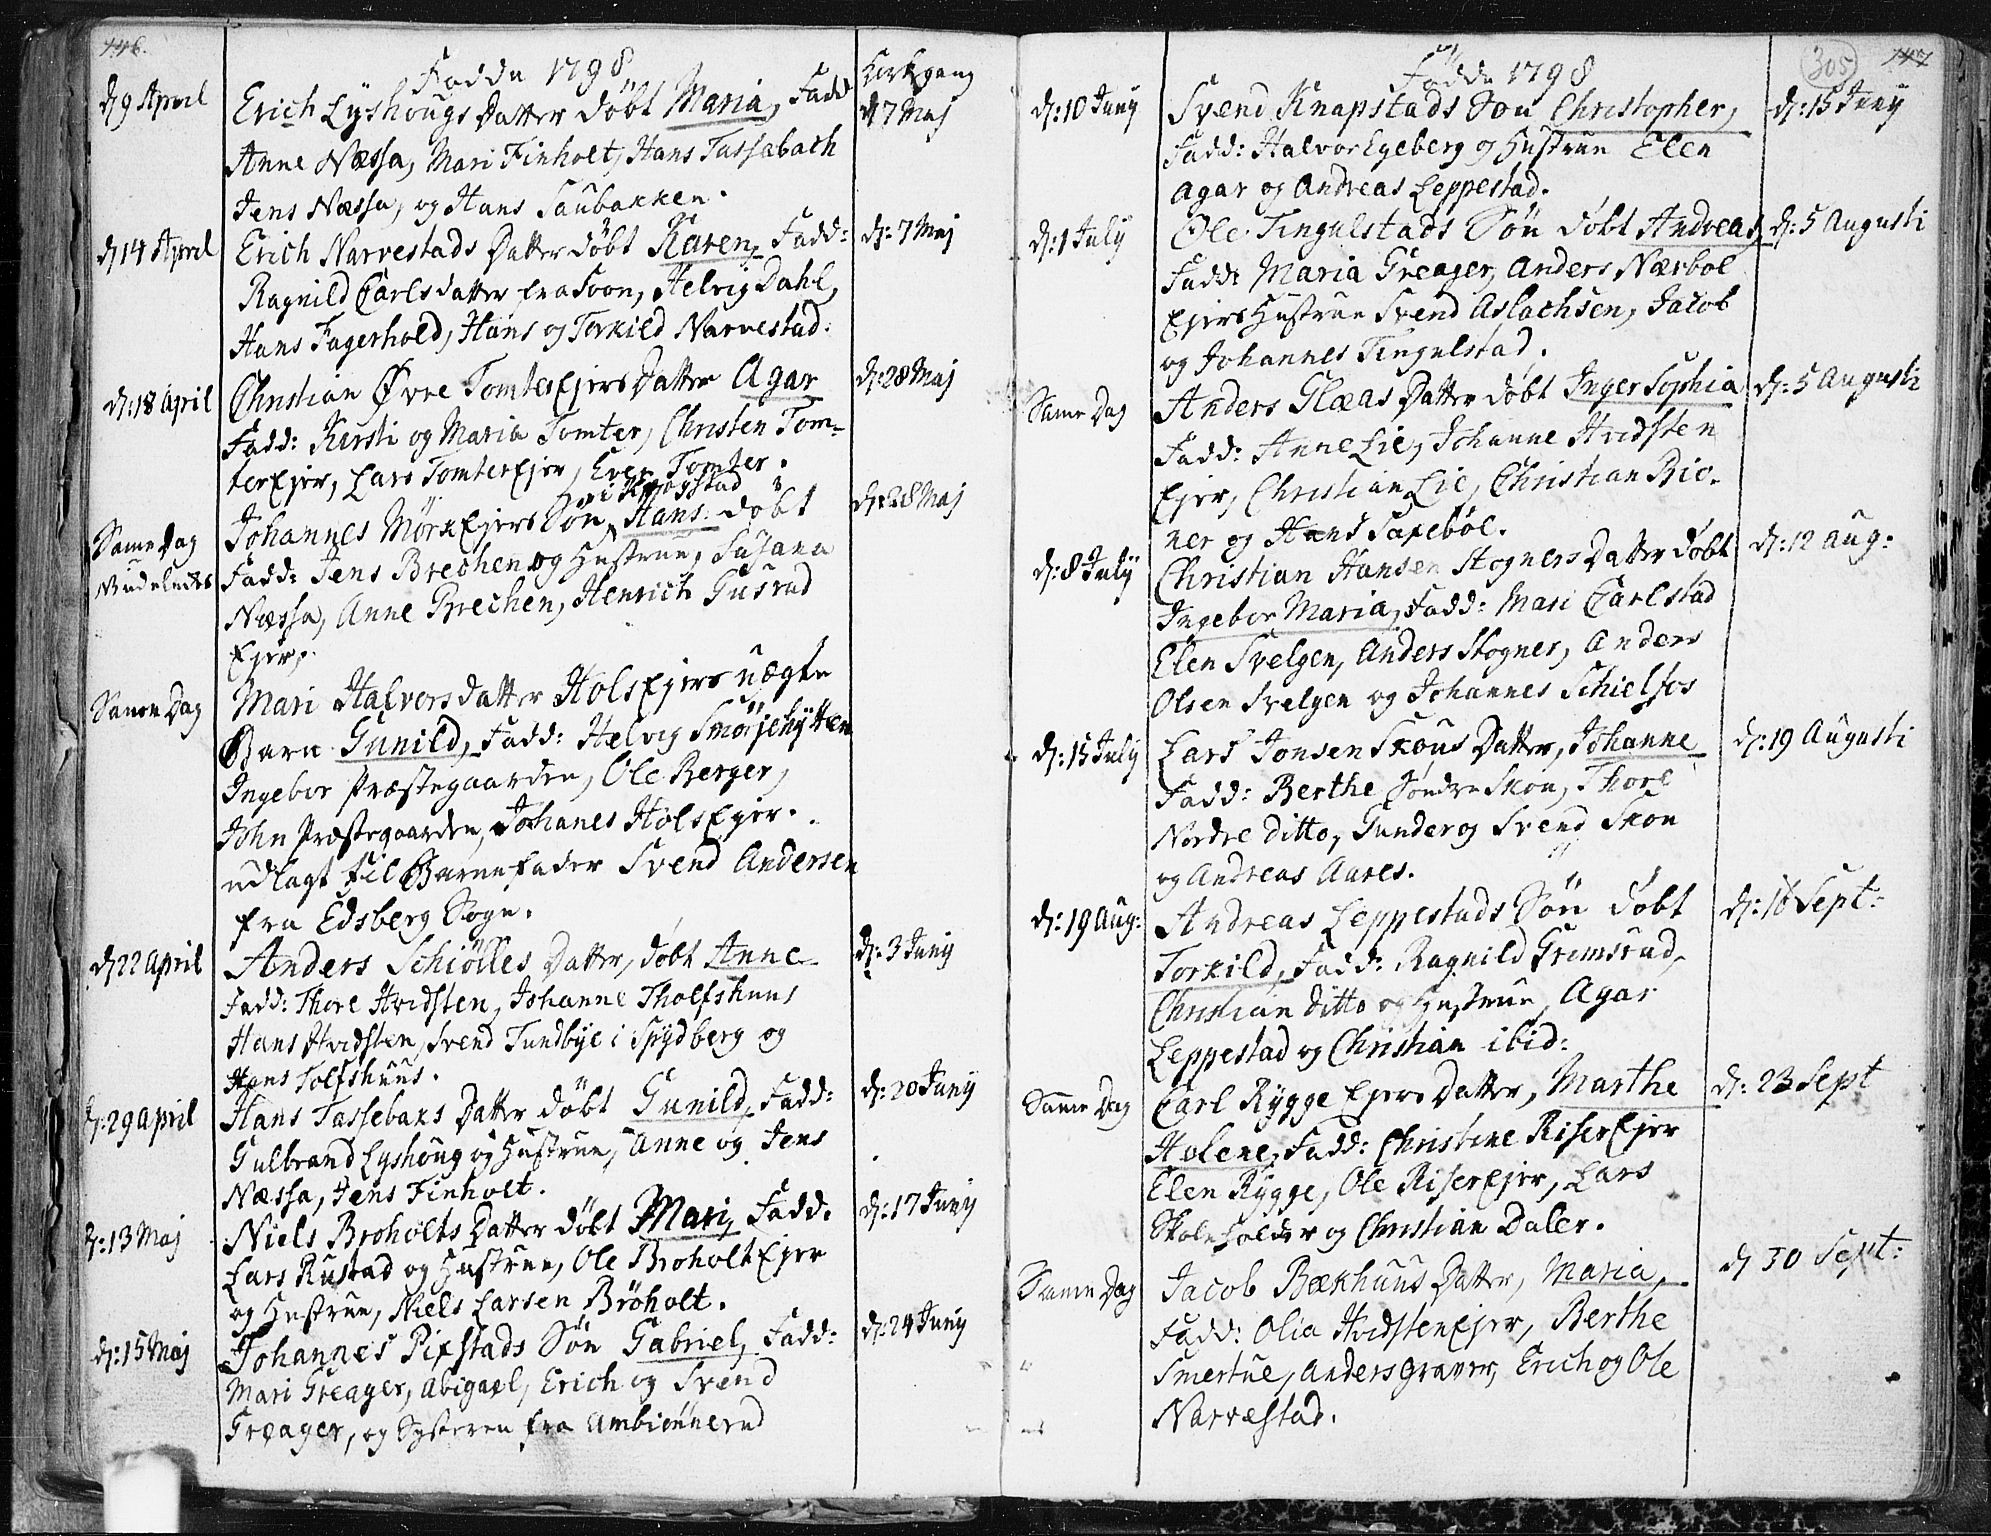 146.
Fødde 1798
Kirkgang
d 9 April
Erich Lyshougs Datter døbt Maria, Fadd
d 7 Maj
Anne Næssa, Mari Finholt, Hans Tassabach
Jens Næssa, og Hans Saubakken.
d 14 April
Erich Narvestads Datter døbt Karen, Fadd:
d: 7 Maj
Ragnild Carlsdatter fra Soon, Helvig Dahl,
Hans Fagerhold, Hans og Torkild Narvestad.
d: 18 April
Christian Øvre TomterEjers Datter Agar
d: 28 Maj
Fadd: Kersti og Maria Tomter, Christen Tom-
terEjer, Lars TomterEjer, Even Tomter.
i Krogstad
Same Dag
Johannes MørkEjers Søn, Hans: døbt
d: 28 Maj
Fadd: Jens Brechen og Hustrue, Susana
Næssa, Anne Brechen, Henrich Gusrud
Ejer,
Samme Dag
Mari Halvorsdatter HolsEjers uægte
Barn Gunild, Fadd: Helvig Smørjehytten
Ingebor Præstegaarden, Ole Berger,
John Præstegaarden, Johanes HolsEjer.
udlagt til Barnefader Svend Andersen
fra Edsberg Sogn.
d 22 April
Anders Schiølles Datter, døbt Anne
d: 3 Juny
Fadd: Thore Hvidsten, Johanne Tholfshuus
Hans Hvidsten, Svend Tundbye i Spydberg og
Hans Tolfshuus.
d: 29 April
Hans Tassebaks Datter døbt Gunild, Fadd:
d: 20 Juny
Gulbrand Lyshoug og Hustrue, Anne og Jens
Næssa, Jens Finholt.
d: 13 Maj
Niels Broholts Datter døbt Mari, Fadd.
d: 17 Juny
Lars Rustad og Hustrue, Ole BroholtEjer
og Hustrue, Niels Larsen Brøholt.
d: 15 Maj
Johannes Pixstads Søn Gabriel, Fadd:
d: 24 Juny
Mari Greager, Abigael, Erich og Svend
Greager, og Systeren fra Ambiønnerud
305
147
Fødde 1798
d: 10 Juny
Svend Knapstads Søn Christopher,
d: 15 Juny
Fadd: Halvor Egeberg og Hustrue Elen
Agar og Andreas Leppestad.
d: 1 July
Ole Tingulstads Søn døbt Andreas
d: 5 Augusti
Fadd: Maria Greager, Anders Nærbøl
Ejers Hustrue Svend Aslachsen, Jacob
og Johannes Tingulstad.
Same Dag
Anders Glæas Datter døbt Inger Sophia
d: 5 Augusti
Fadd: Anne Lie, Johanne Hvidsten
Ejer, Christian Lie, Christian Bie-
ner og Hans Saxebøl.
d: 8 July
Christian Hansen Hogners Datter døbt
d: 12 Aug:
Ingebor Maria, Fadd: Mari Carlstad
Elen Svelgen, Anders Hogner, Anders
Olsen Svelgen og Johannes Schielfos
d: 15 July
Lars Jonsen Skous Datter, Johanne
d: 19 Augusti
Fadd: Berthe Søndre Skou, Thore
Nordre Ditto, Gunder og Svend Skou
og Andreas Aares.
d: 19 Aug:
Andreas Leppestads Søn døbt
d: 16 Sept:
Torkild, Fadd: Ragnild Grimsrud,
Christian Ditto og Hustrue, Agar
Leppestad og Christian ibid:
Samme Dag
Carl Rygge Ejers Datter, Marthe
d: 23 Sept
Holene, Fadd: Christine RiserEjer
Elen Rygge, Ole RiserEjer, Lars
Skoleholder og Christian Daler.
Samme Dag
Jacob Bækhuus Datter, Maria,
d 30 Sept:
Fadd: Olia HvidstenEjer, Berthe
Smertue, Anders Graver, Erich og Ole
Narvæstad.